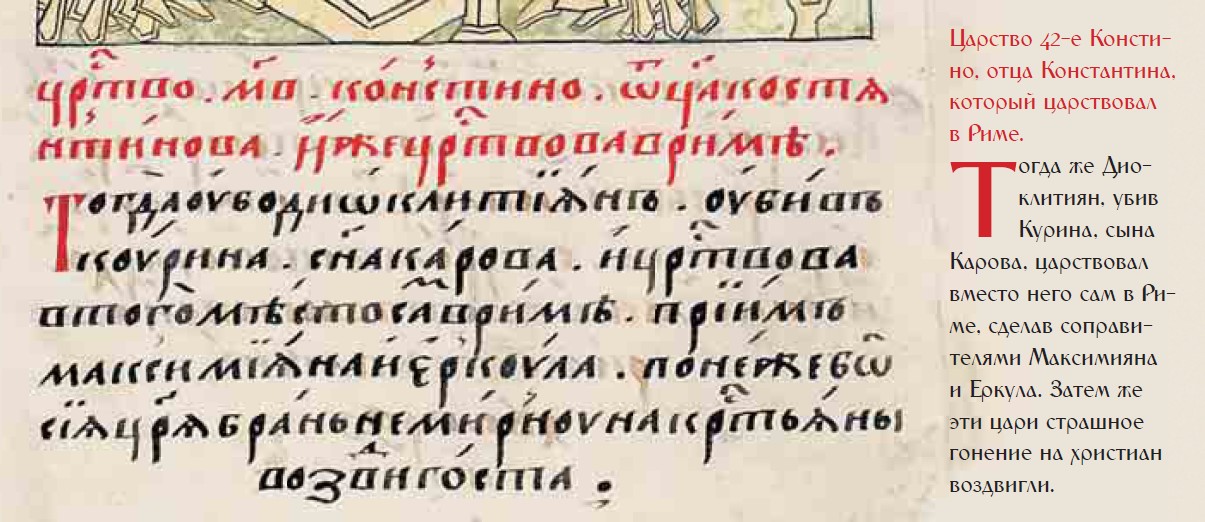 црⷭ҇тво. м҃в. ко́нстино. ѿц҃а костѧ
нти́нова. и҆́же црⷭ҇твова в ри́мѣ.
Тогда оу҆бо дио҆клитїѧ́нъ. оу҆би́въ
коу́рина. сн҃а ка́рова. и҆ црⷭ҇твова
в того̀ мѣ́сто са в ри́мѣ. прїи́мъ
максимїѧ́на и҆ є҆рꙋ́коула. поне́же бѡ
сїѧ̀ цр҃ѧ бра́нь неми́рноу на крⷭ҇тьѧ́ны
воздвиго́ста.
Царство 42-е Консти-
но, отца Константина,
который царствовал
в Риме.
Тогда же Дио-
клитиян, убив
Курина, сына
Карова, царствовал
вместо него сам в Ри-
ме, сделав соправи-
телями Максимияна
и Еркула. Затем же
эти цари страшное
гонение на христиан
воздвигли.